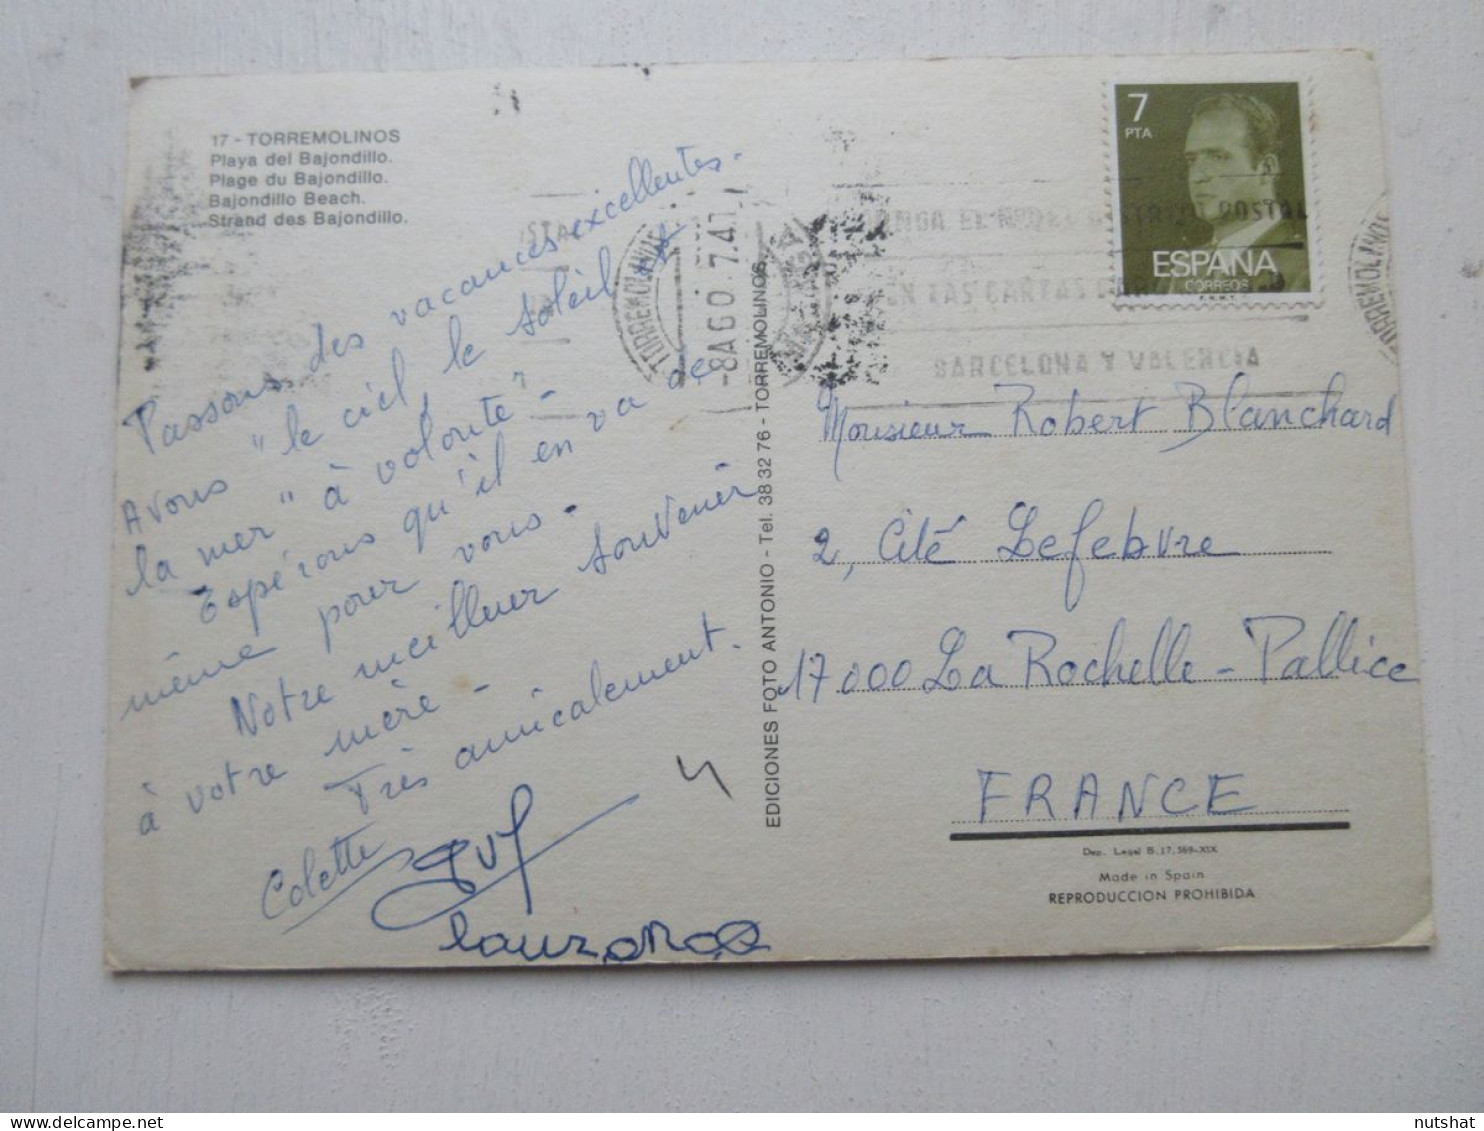 17 - TORREMOLINOS
Playa del Bajondillo.
Plage du Bajondillo.
Bajondillo Beach.
Strand des Bajondillo.
Passons des vacances excellentes.
Avons "le ciel, le soleil et
la mer" "à volonté" -
Espérons qu'il en va de
même pour vous -
Notre meilleur souvenir
à votre mère -
Très amicalement.
Colette
Guy
EDICIONES FOTO ANTONIO - Tel. 38 32 76 - TORREMOLINOS
7
PTA
ESPAÑA
CORREOS
TORREMOLINOS
-8AGO 7
DISTRITO POSTAL
EN LAS CARTAS
BARCELONA Y VALENCIA
TORREMOLINOS
Monsieur Robert Blanchard
2, Cité Lefebvre
17000 La Rochelle-Pallice
FRANCE
Dep. Legal B. 17.569-XIX
Made in Spain
REPRODUCCION PROHIBIDA
nutshat